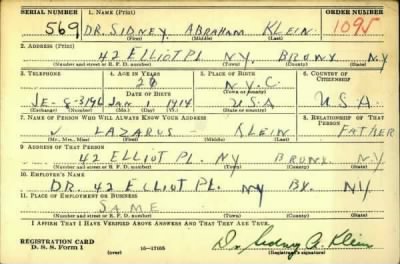 SERIAL NUMBER 1. NAME (Print) ORDER NUMBER
569 DR. SIDNEY ABRAHAM KLEIN 1095
(First) (Middle) (Last)
2. ADDRESS (Print)
42 ELLIOT PL. NY. BRONX N.Y
(Number and street or R. F. D. number) (Town) (County) (State)
3. TELEPHONE 4. AGE IN YEARS 5. PLACE OF BIRTH 6. COUNTRY OF CITIZENSHIP
N.Y.C.
DATE OF BIRTH
JE-8-3196 JAN 1 1914 USA U.S.A.
(Exchange) (Number) (Mo.) (Day) (Yr.) (State or country)
7. NAME OF PERSON WHO WILL ALWAYS KNOW YOUR ADDRESS 8. RELATIONSHIP OF THAT PERSON
LAZARUS - KLEIN FATHER
(Mr., Mrs., Miss) (First) (Middle) (Last)
9. ADDRESS OF THAT PERSON
42 ELLIOT PL. NY BRONX N.Y
(Number and street or R. F. D. number) (Town) (County) (State)
10. EMPLOYER'S NAME
DR. 42 ELLIOT PL. NY BX. NY
11. PLACE OF EMPLOYMENT OR BUSINESS
SAME
(Number and street or R. F. D. number) (Town) (County) (State)
I AFFIRM THAT I HAVE VERIFIED ABOVE ANSWERS AND THAT THEY ARE TRUE.
REGISTRATION CARD
D. S. S. Form 1 (over) 16-17105 Dr. Sidney A. Klein
(Registrant's signature)